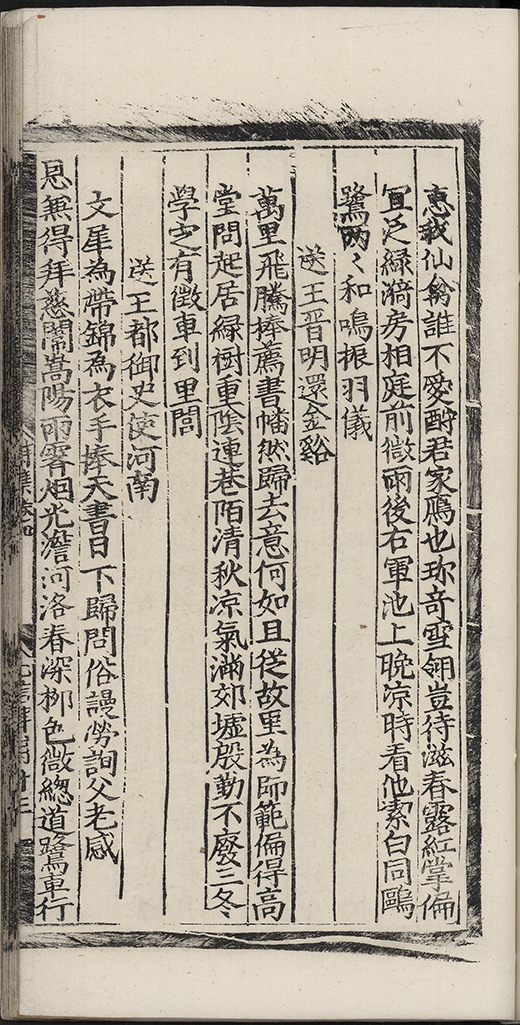 惠我仙禽誰不愛酧君家鴈也珎奇雪翎豈待滋春露紅掌偏
冝泛綠漪房相庭前微雨後右軍池上晚凉時看他潔白同鷗
鷺兩〻和鳴振羽儀
送王晋明還金谿
萬里飛騰捧薦書幡然歸去意何如且從故里為師範偏得高
堂問起居綠樹重陰連巷陌清秋凉氣滿郊墟殷勤不廢三冬
學㝎有徵車到里閭
送王都御史使河南
文犀為帶錦為衣手捧天書日下歸問俗謾勞詢父老感
恩無得拜慈闈嵩陽雨霽烟光澹河洛春深柳色微緫道鷺車行